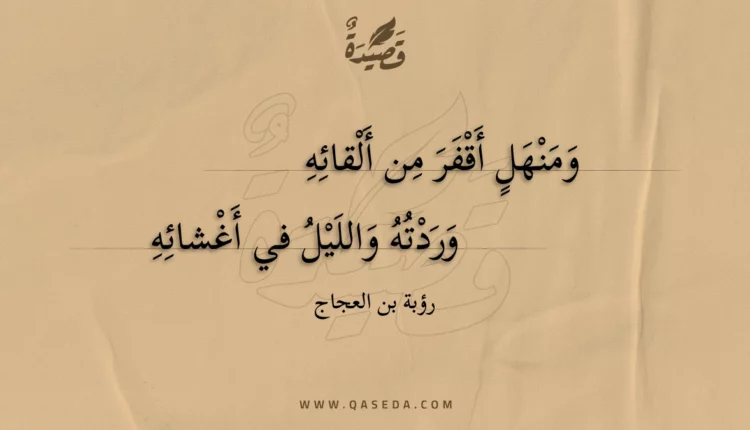 قَصِيْدَةٌ
وَمَنْهَلٍ أَقْفَرَ مِن أَلْقائِهِ
وَرَدْتُهُ وَاللَيْلُ في أَغْشائِهِ
رؤبة بن العجاج
WWW.QASEDA.COM